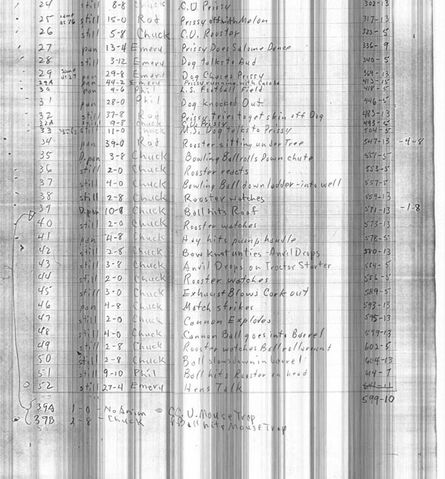 24 still 8-8 C.U Prissy 302-13
25 same as 76 still 15-0 Rod Prissy off with Melon 317-13
26 still 5-8 Chuck C.U. Rooster 323-5
27 pan 13-4 Emery Prissy Does Salome Dance 336-9
28 still 3-12 Emery Dog talks to Aud 340-5
29 pan 29-8 Emery Dog Chases Prissy
29A pan Prissy running with
30 pan 4-6 Phil L.S. Football Field
31 pan 28-0 Phil Dog Knocked Out 446-5
32 still 37-8 Rod Prissy Tries to get skin off Dog 483-13
32A 9-8 Chuck 493-5
33 still 11-0 Chuck M.S. Dog Talks to Prissy 504-5
34 pan 39-0 Rod Rooster sitting under Tree 547-13 -4-8
35 D.pan 3-8 Chuck Bowling Ball rolls Down chute 551-5
36 still 2-0 Chuck Rooster reacts 553-5
37 still 4-0 Chuck Bowling Ball down ladder-into well 557-5
38 still 2-8 Chuck Rooster watches 559-13
39 D.pan 10-8 Chuck Ball hits Roof 571-13 -1-8
40 still 2-0 Chuck Rooster watches 573-13
41 pan 4-8 Chuck Hay hits pump handle 578-5
42 still 2-8 Chuck Bow knot unties - Anvil Drops 580-13
43 still 3-8 Chuck Anvil Drops on Tractor Starter 584-5
44 still 2-0 Chuck Rooster watches 586-5
45 still 3-0 Chuck Exhaust Blows Cork out 589-5
46 pan 4-8 Chuck Match strikes 593-13
47 still 2-0 Chuck Cannon Explodes 595-13
48 still 4-0 Chuck Cannon Ball goes into Barrel 599-13
49 still 2-8 Chuck Rooster watches Ball roll around 602-5
50 still 2-8 Chuck Ball slows down in barrel 604-13
51 still 9-10 Phil Ball hits Rooster on head
52 still 27-4 Emery Hens Talk
599-10
39A 1-0 - No Anim = C.U. Mouse Trap
39B 2-8 - Chuck = Ball hits Mouse Trap